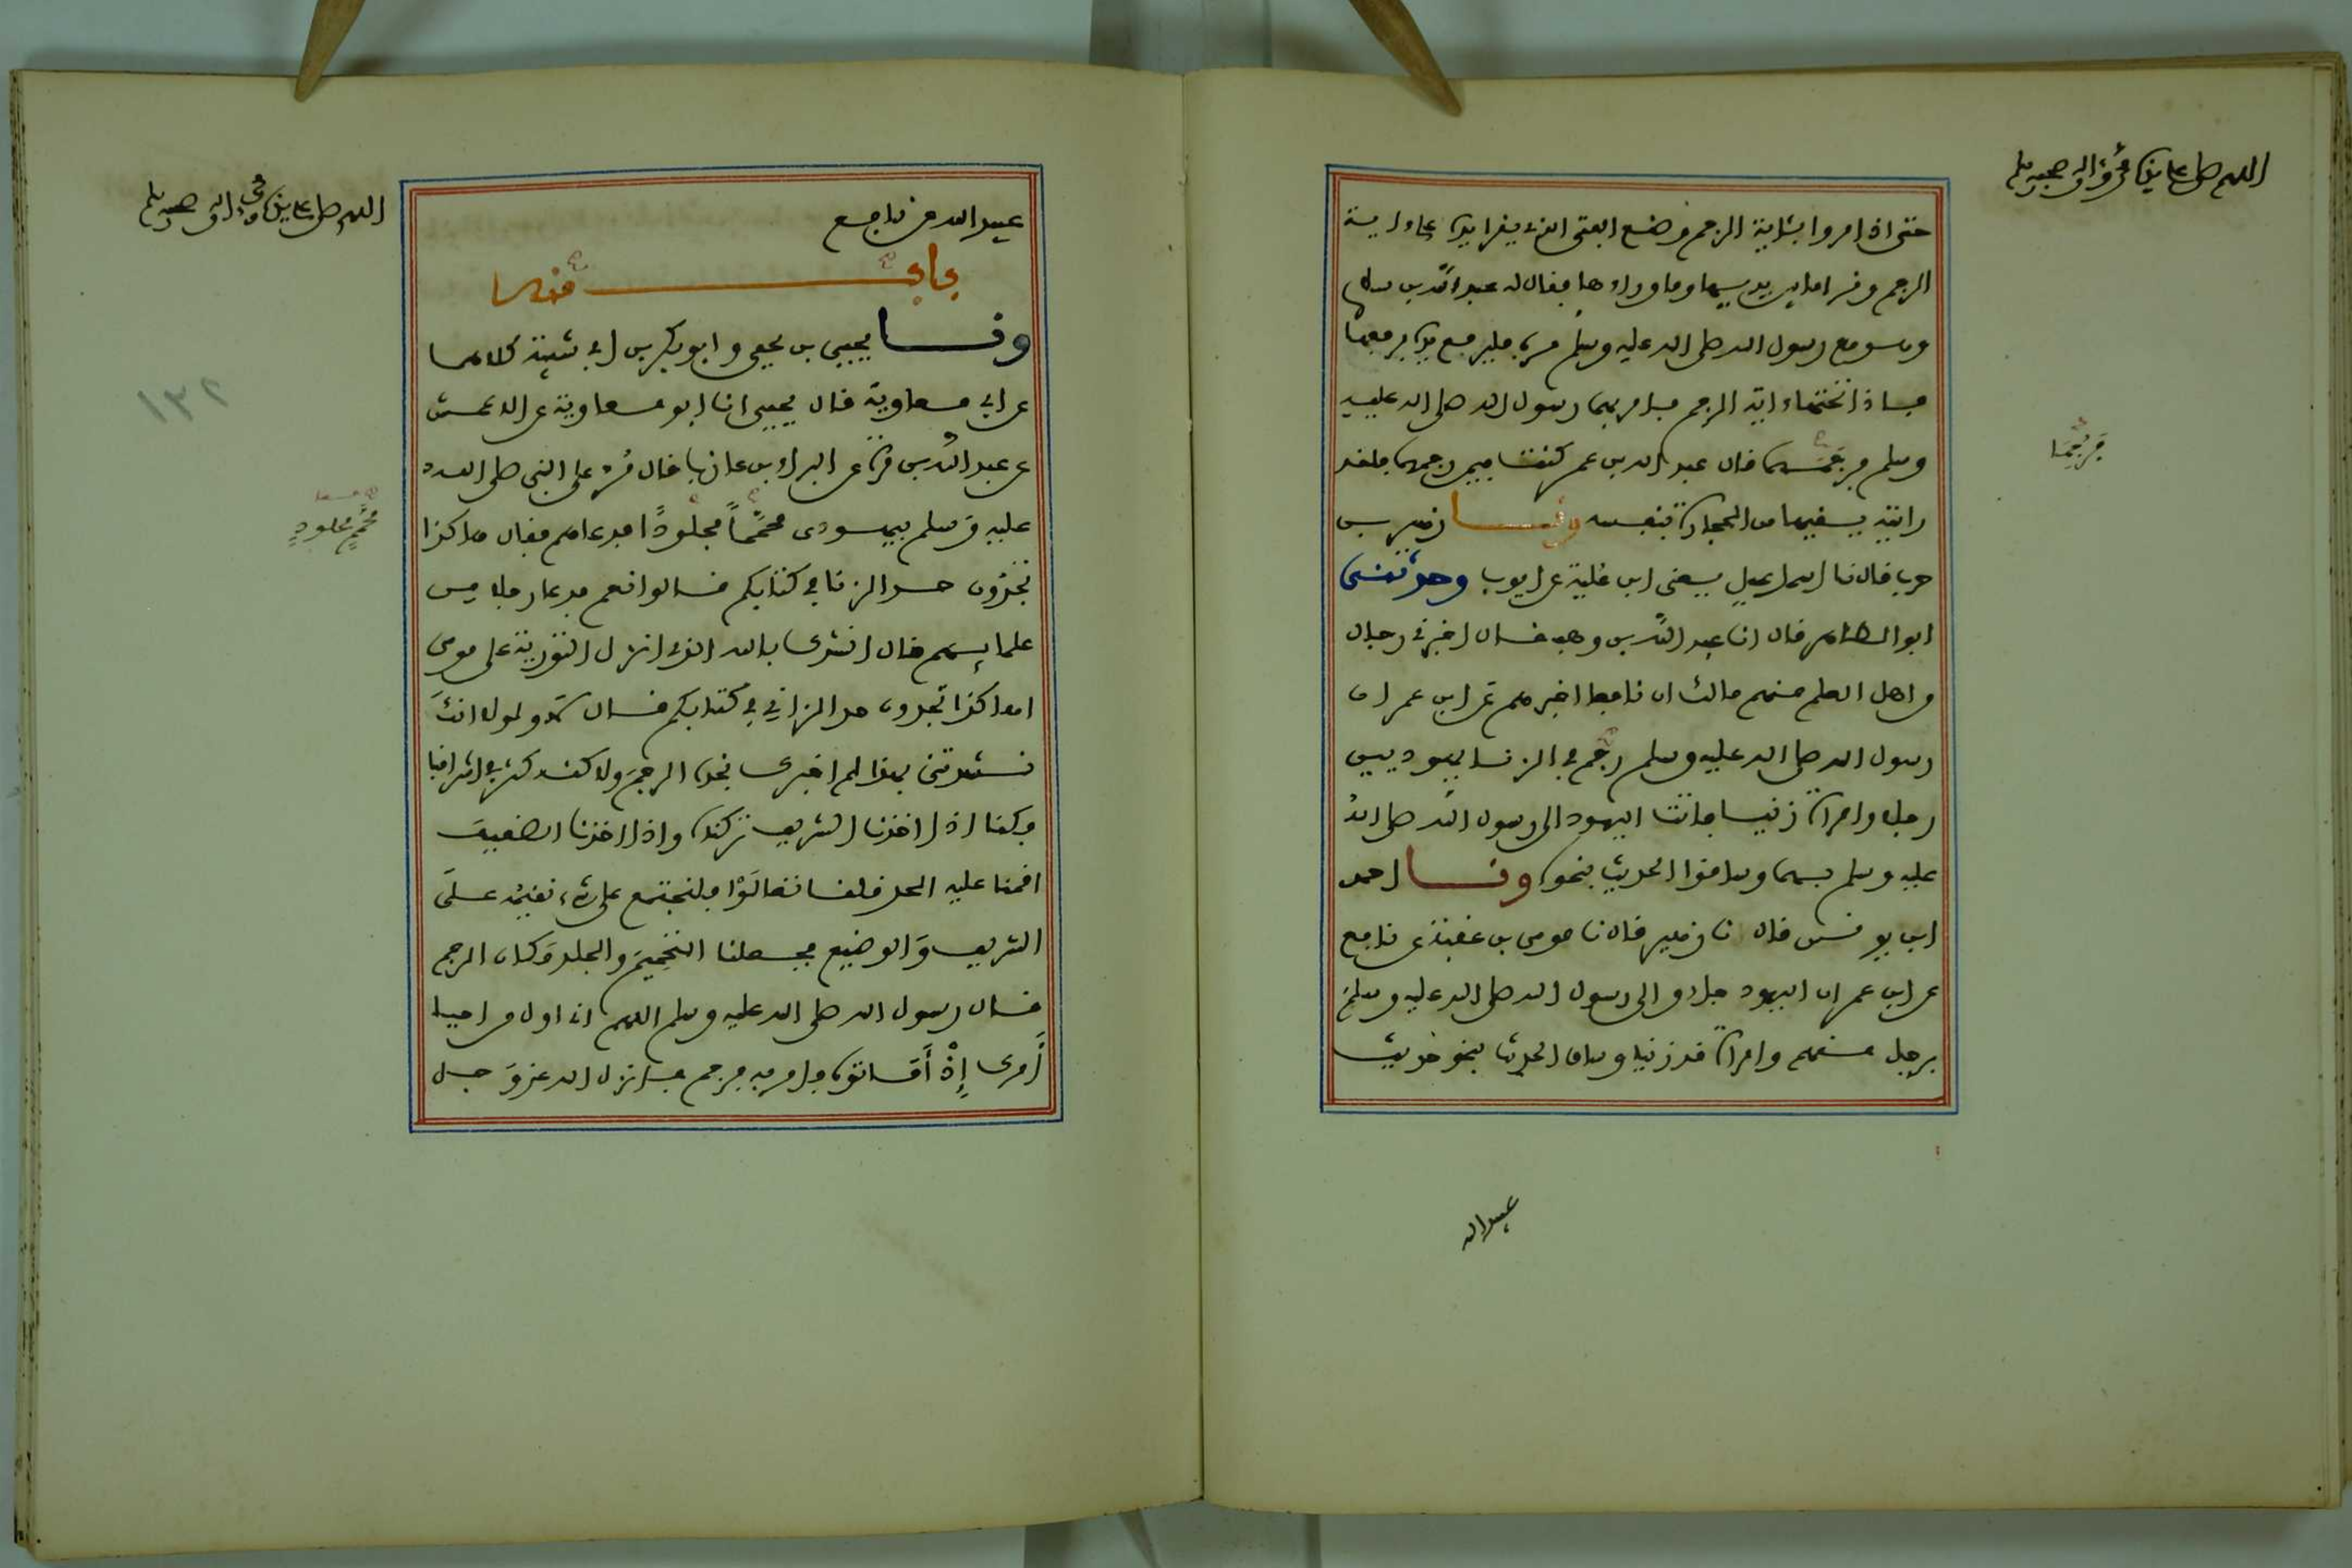 اللهم صل على سيدنا محمد وآله وصحبه وسلم
حتى اذا مروا بئاية الرجم وضع الفتى الذى يقرا يده على ءاية
الرجم وقرا ما بين يديها وما وراءها فقال له عبد الله بن سلام
وهو مع رسول الله صلى الله عليه وسلم مره فليرفع يده فرفعها
فاذا تحتها ءاية الرجم فامر بهما رسول الله صلى الله عليه
وسلم فرجمهما قال عبد الله بن عمر كنت فيمن رجمهما فلقد
رايته يقيها من الحجارة بنفسه ونا زهير بن
حرب قال نا اسماعيل يعنى ابن علية عن ايوب وحدثنى
ابو الطاهر قال انا عبد الله بن وهب قال اخبرنى رجال
من اهل العلم منهم مالك ان نافعا اخبرهم عن ابن عمر ان
رسول الله صلى الله عليه وسلم رجم فى الزنا يهوديين
رجلا وامراة زنيا فاتت اليهود الى رسول الله صلى الله
عليه وسلم بهما وساقوا الحديث بنحوه ونا احمد
ابن يونس قال نا زهير قال نا موسى بن عقبة عن نافع
عن ابن عمر ان اليهود جاءوا الى رسول الله صلى الله عليه وسلم
برجل منهم وامراة قد زنيا وساق الحديث بنحو حديث
فرفعها
عبيد الله
اللهم صل على سيدنا محمد وآله وصحبه وسلم
عبيد الله عن نافع
باب منه
ونا يحيى بن يحيى وابو بكر بن ابى شيبة كلاهما
عن ابى معاوية قال يحيى انا ابو معاوية عن الاعمش
عن عبد الله بن مرة عن البراء بن عازب قال مر على النبى صلى الله
عليه وسلم بيهودى محمما مجلودا فدعاهم فقال هاكذا
تجدون حد الزنا فى كتابكم قالوا نعم فدعا رجلا من
علمائهم قال انشدك بالله الذى انزل التورية على موسى
اهاكذا تجدون حد الزانى فى كتابكم قال لا ولولا انك
نشدتنى بهذا لم اخبرك نجده الرجم ولاكنه كثر فى اشرافنا
فكنا اذا اخذنا الشريف تركناه واذا اخذنا الضعيف
اقمنا عليه الحد قلنا تعالوا فلنجتمع على شىء نقيمه على
الشريف والوضيع فجعلنا التحميم والجلد مكان الرجم
فقال رسول الله صلى الله عليه وسلم اللهم انى اول من احيا
امرك إذ أماتوه فامر به فرجم فانزل الله عز وجل
محمم مجلود
١٣٢